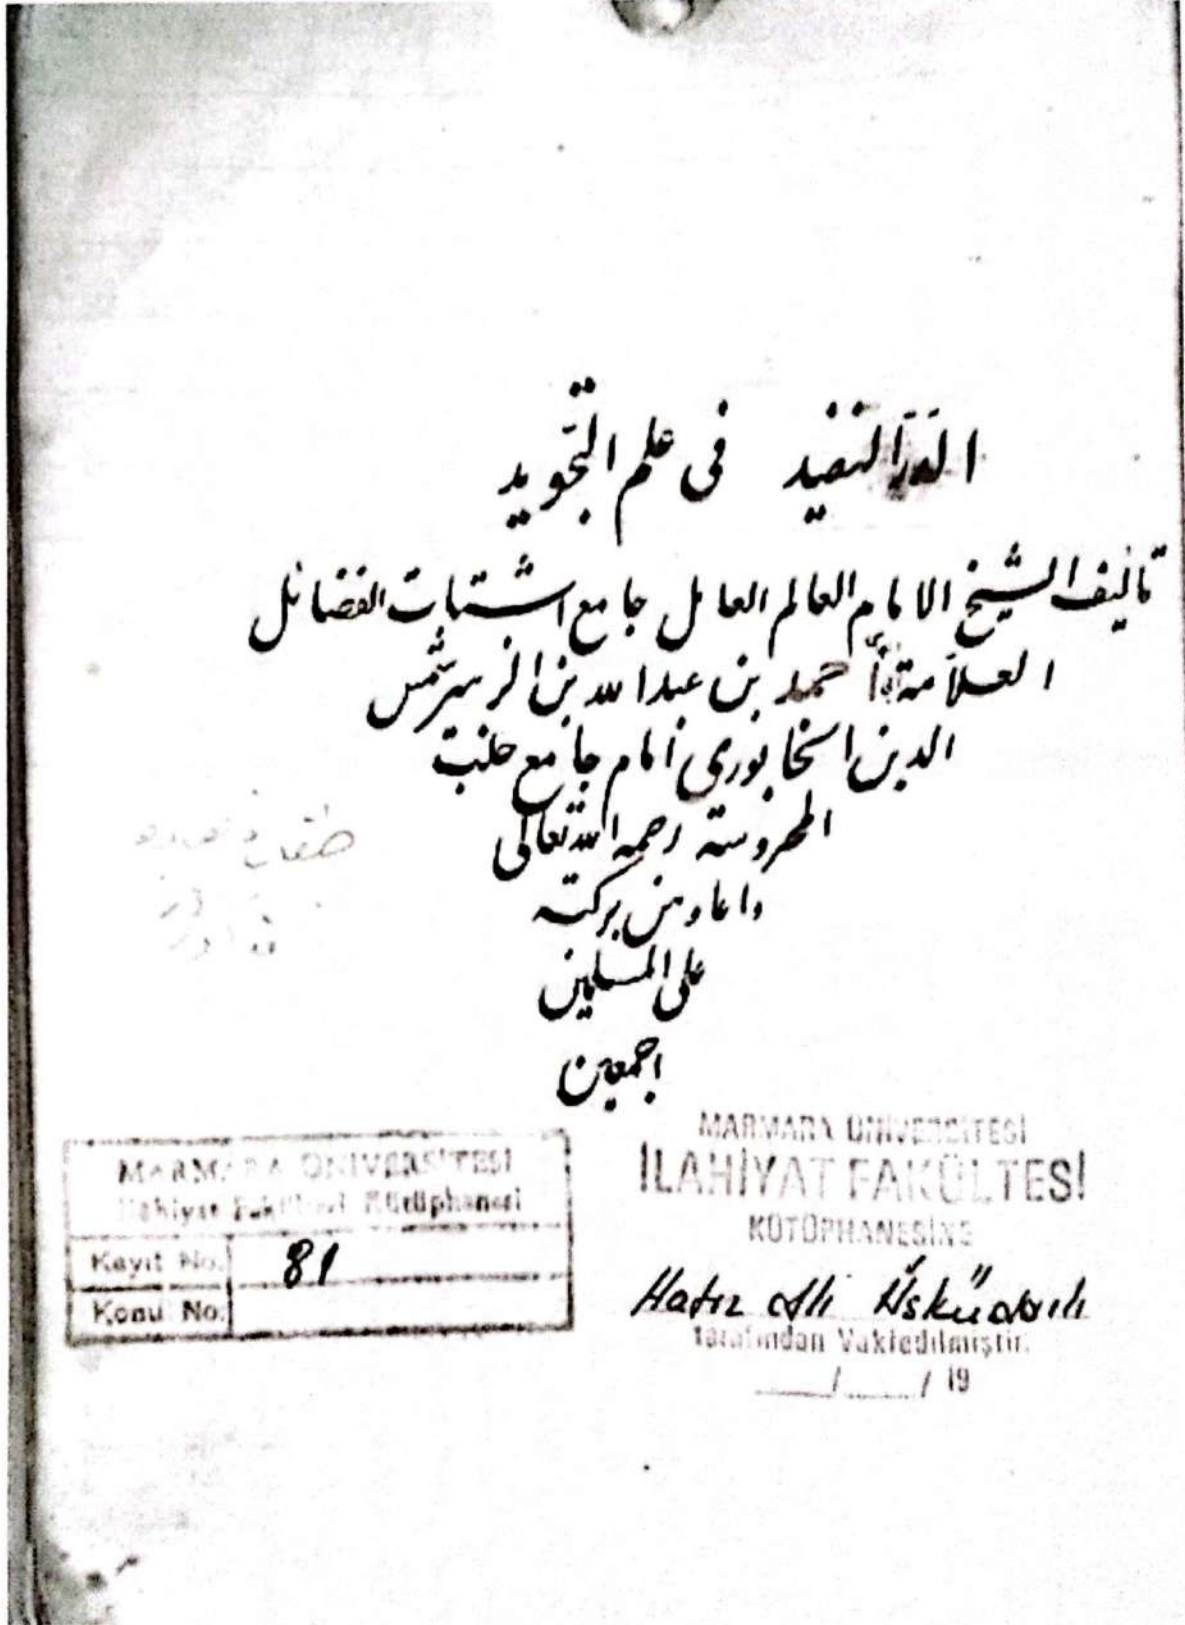 الدر النضيد فى علم التجويد
تأليف الشيخ الامام العالم العامل جامع اشتات الفضائل
العلامة أحمد بن عبد الله بن الزبير شمس
الدين الخابورى امام جامع حلب
المحروسة رحمه الله تعالى
واعاد من بركته
على المسلمين
اجمعين
MARMARA ÜNİVERSİTESİ
İlahiyat Fakültesi Kütüphanesi
Kayıt No. 81
Konu No.
MARMARA ÜNİVERSİTESİ
İLAHİYAT FAKÜLTESİ
KÜTÜPHANESİNE
Hafız Ali Üsküdarlı
tarafından Vakfedilmiştir.
/ / 19